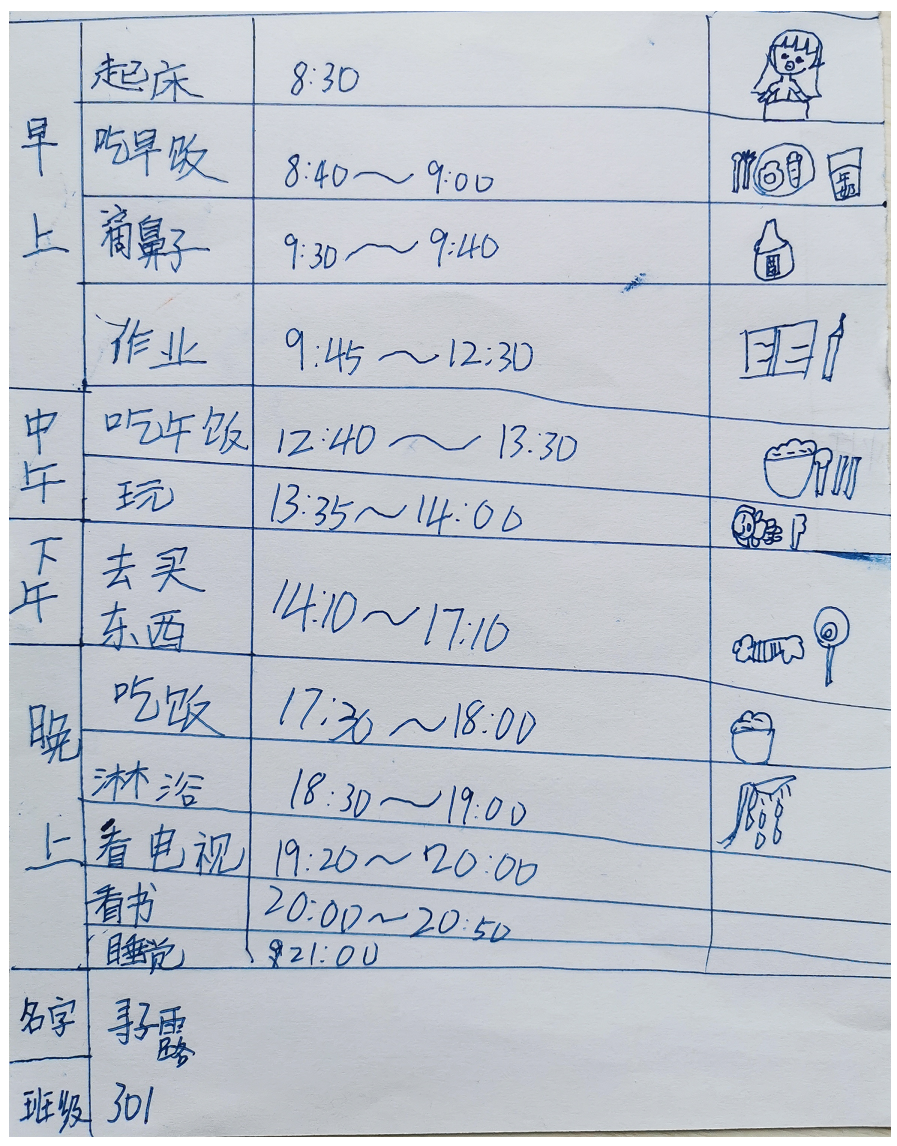 早上
起床 8:30
吃早饭 8:40～9:00
滴鼻子 9:30～9:40
作业 9:45～12:30
中午
吃午饭 12:40～13:30
玩 13:35～14:00
下午
去买东西 14:10～17:10
晚上
吃饭 17:30～18:00
淋浴 18:30～19:00
看电视 19:20～20:00
看书 20:00～20:50
睡觉 21:00
名字 子露
班级 301